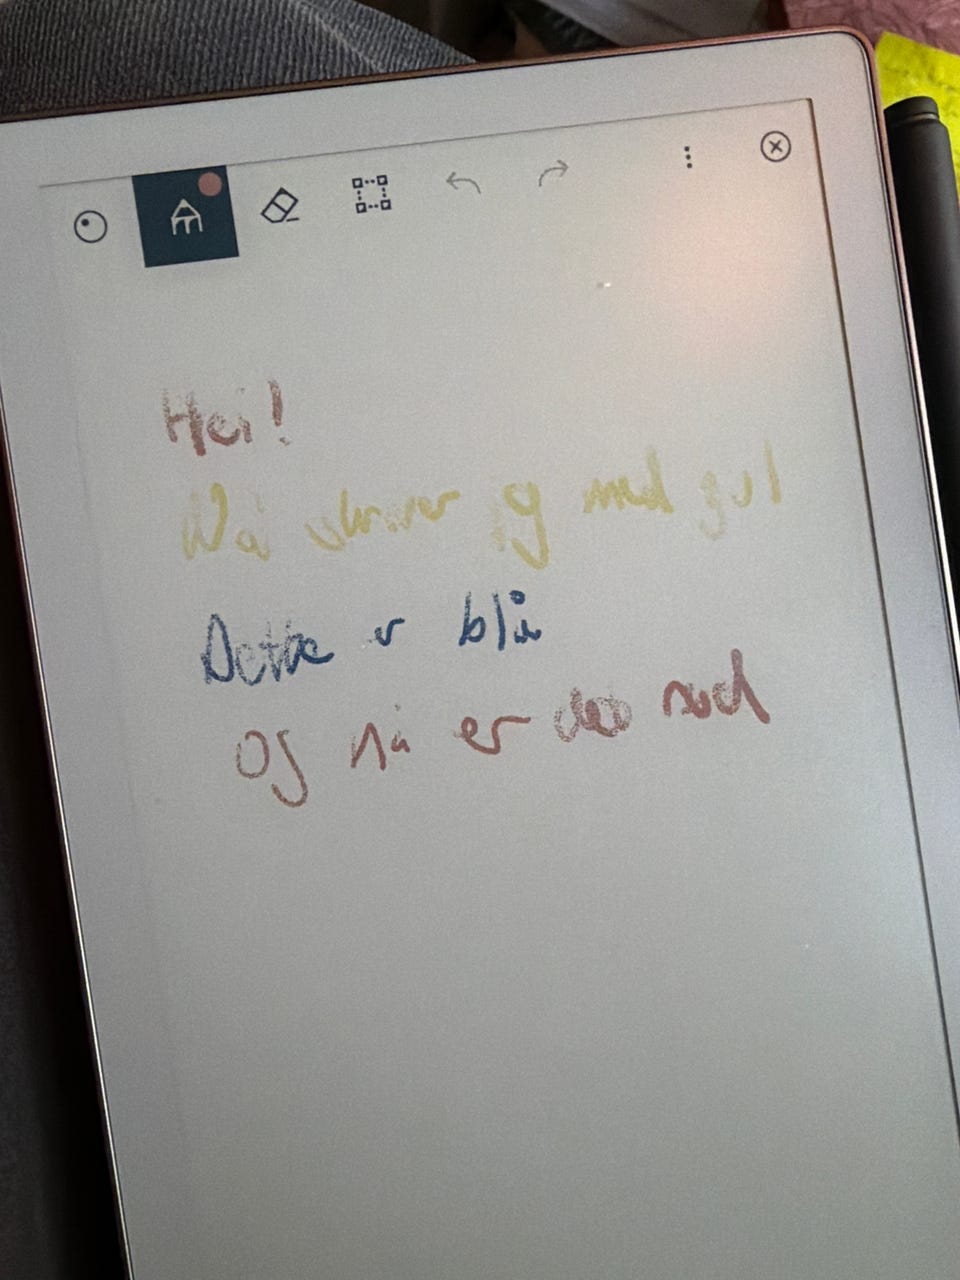 Hei!
Nå skriver jeg med gul
Dette er blå
og nå er det rød